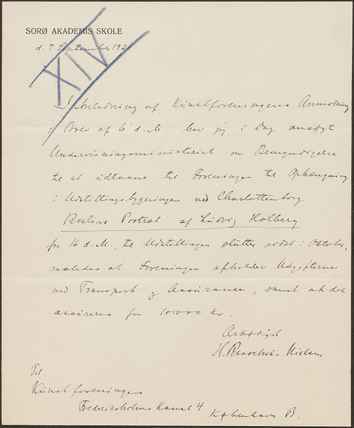 SORØ AKADEMIS SKOLE
d. 7 September 192
XIV
I Anledning af Kunstforeningens Anmodning
i Brev af 6 d. M. har jeg i Dag ansøgt
Undervisningsministeriet om Bemyndigelse
til at udlaane til Foreningen til Ophængning
i Udstillingsbygningen ved Charlottenborg
Portræt af Ludvig Holberg
fra d. M. til Udstillingen slutter i Oktober,
saaledes at Foreningen afholder Udgifterne
ved Transport og Assurance, samt at det
assureres for 10000 Kr.
Ærbødigst
H. Raaschou-Nielsen
Til
Kunstforeningen
Frederiksholms Kanal 4
København B.